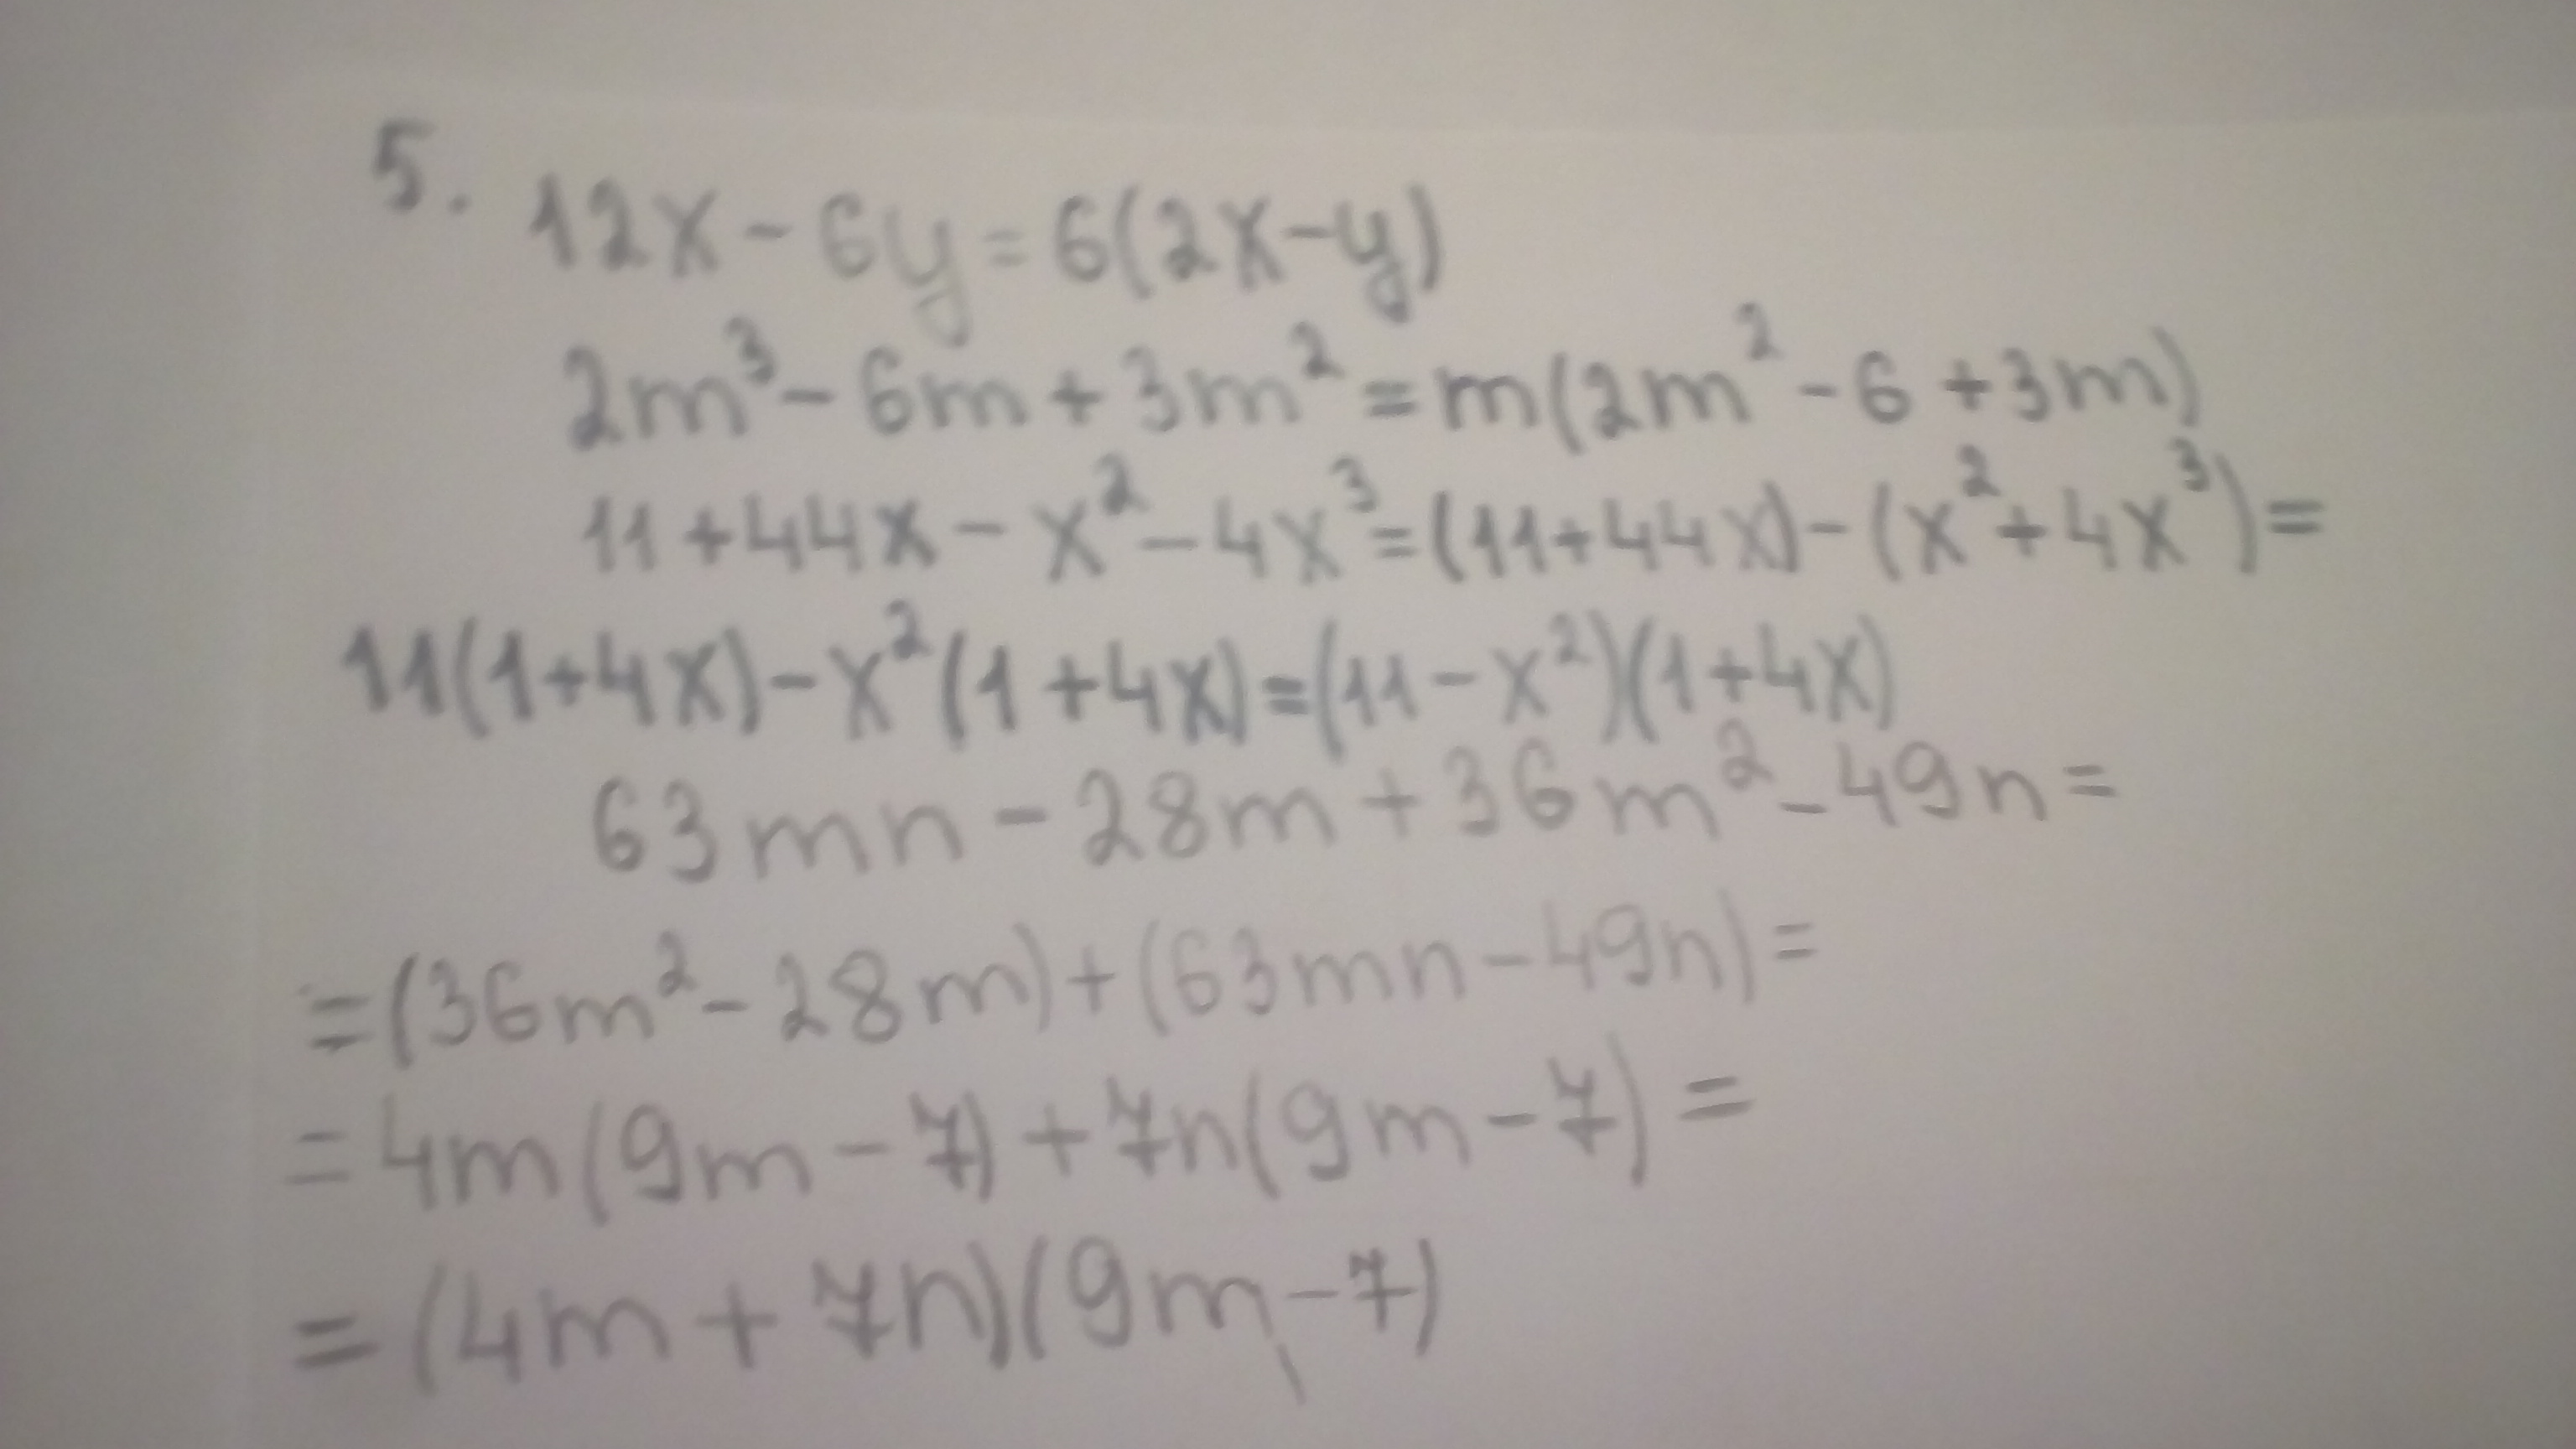 5. 12x - 6y = 6(2x-y)
2m³ - 6m + 3m² = m(2m² - 6 + 3m)
11 + 44x - x² - 4x³ = (11+44x) - (x² + 4x³) =
11(1+4x) - x²(1+4x) = (11 - x²)(1+4x)
63mn - 28m + 36m² - 49n =
= (36m² - 28m) + (63mn - 49n) =
= 4m(9m - 7) + 7n(9m - 7) =
= (4m + 7n)(9m - 7)